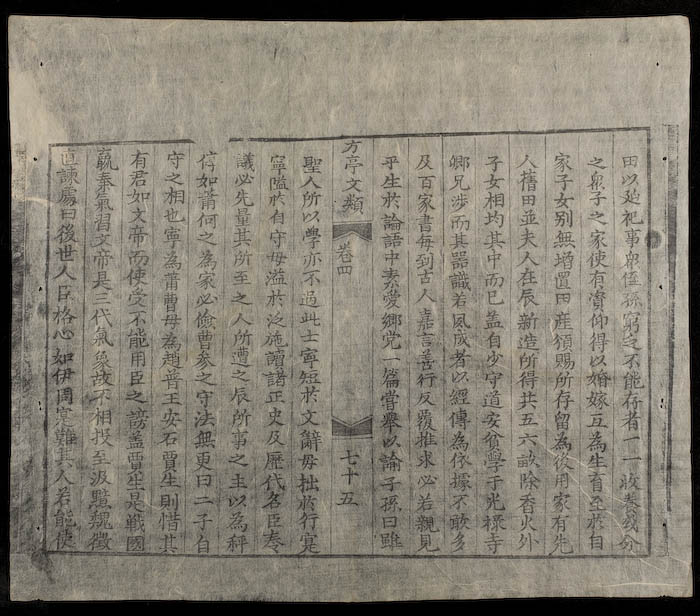 田以延祀事衆侄孫窮乏不能存者一一收養或分
之衆子之家使有資仰得以婚嫁互為生育至於自
家子女別無增置田産頒賜所存留為後用家有先
人舊田並夫人在辰新造所得共五六畝除香火外
子女相均其中而已盖自少守道安貧學于光禄寺
鄉兄涉而其器識若夙成者以經傳為依據不敢多
及百家書每到古人嘉言善行反覆推求必若親見
平生於論語中素愛鄉党一篇甞舉以論子孫曰雖
方亭文類 卷四 七十五
聖人所以學亦不過此士寧短於文辭毋拙於行寔
寧隘於自守毋溢於泛施讀諸正史及歷代名臣奏
議必先量其所至之人所遭之辰所事之主以為秤
停如蕭何之為家必儉曹参之守法無更曰二子自
守之相也寧為蕭曹毋為趙普王安石賈生則惜其
有君如文帝而使受不能用臣之謗盖賈生是戰國
嬴秦氣習文帝是三代氣象故不相投至汲黯魏徵
直諫處曰後世人臣格心如伊周寔難其人若能使